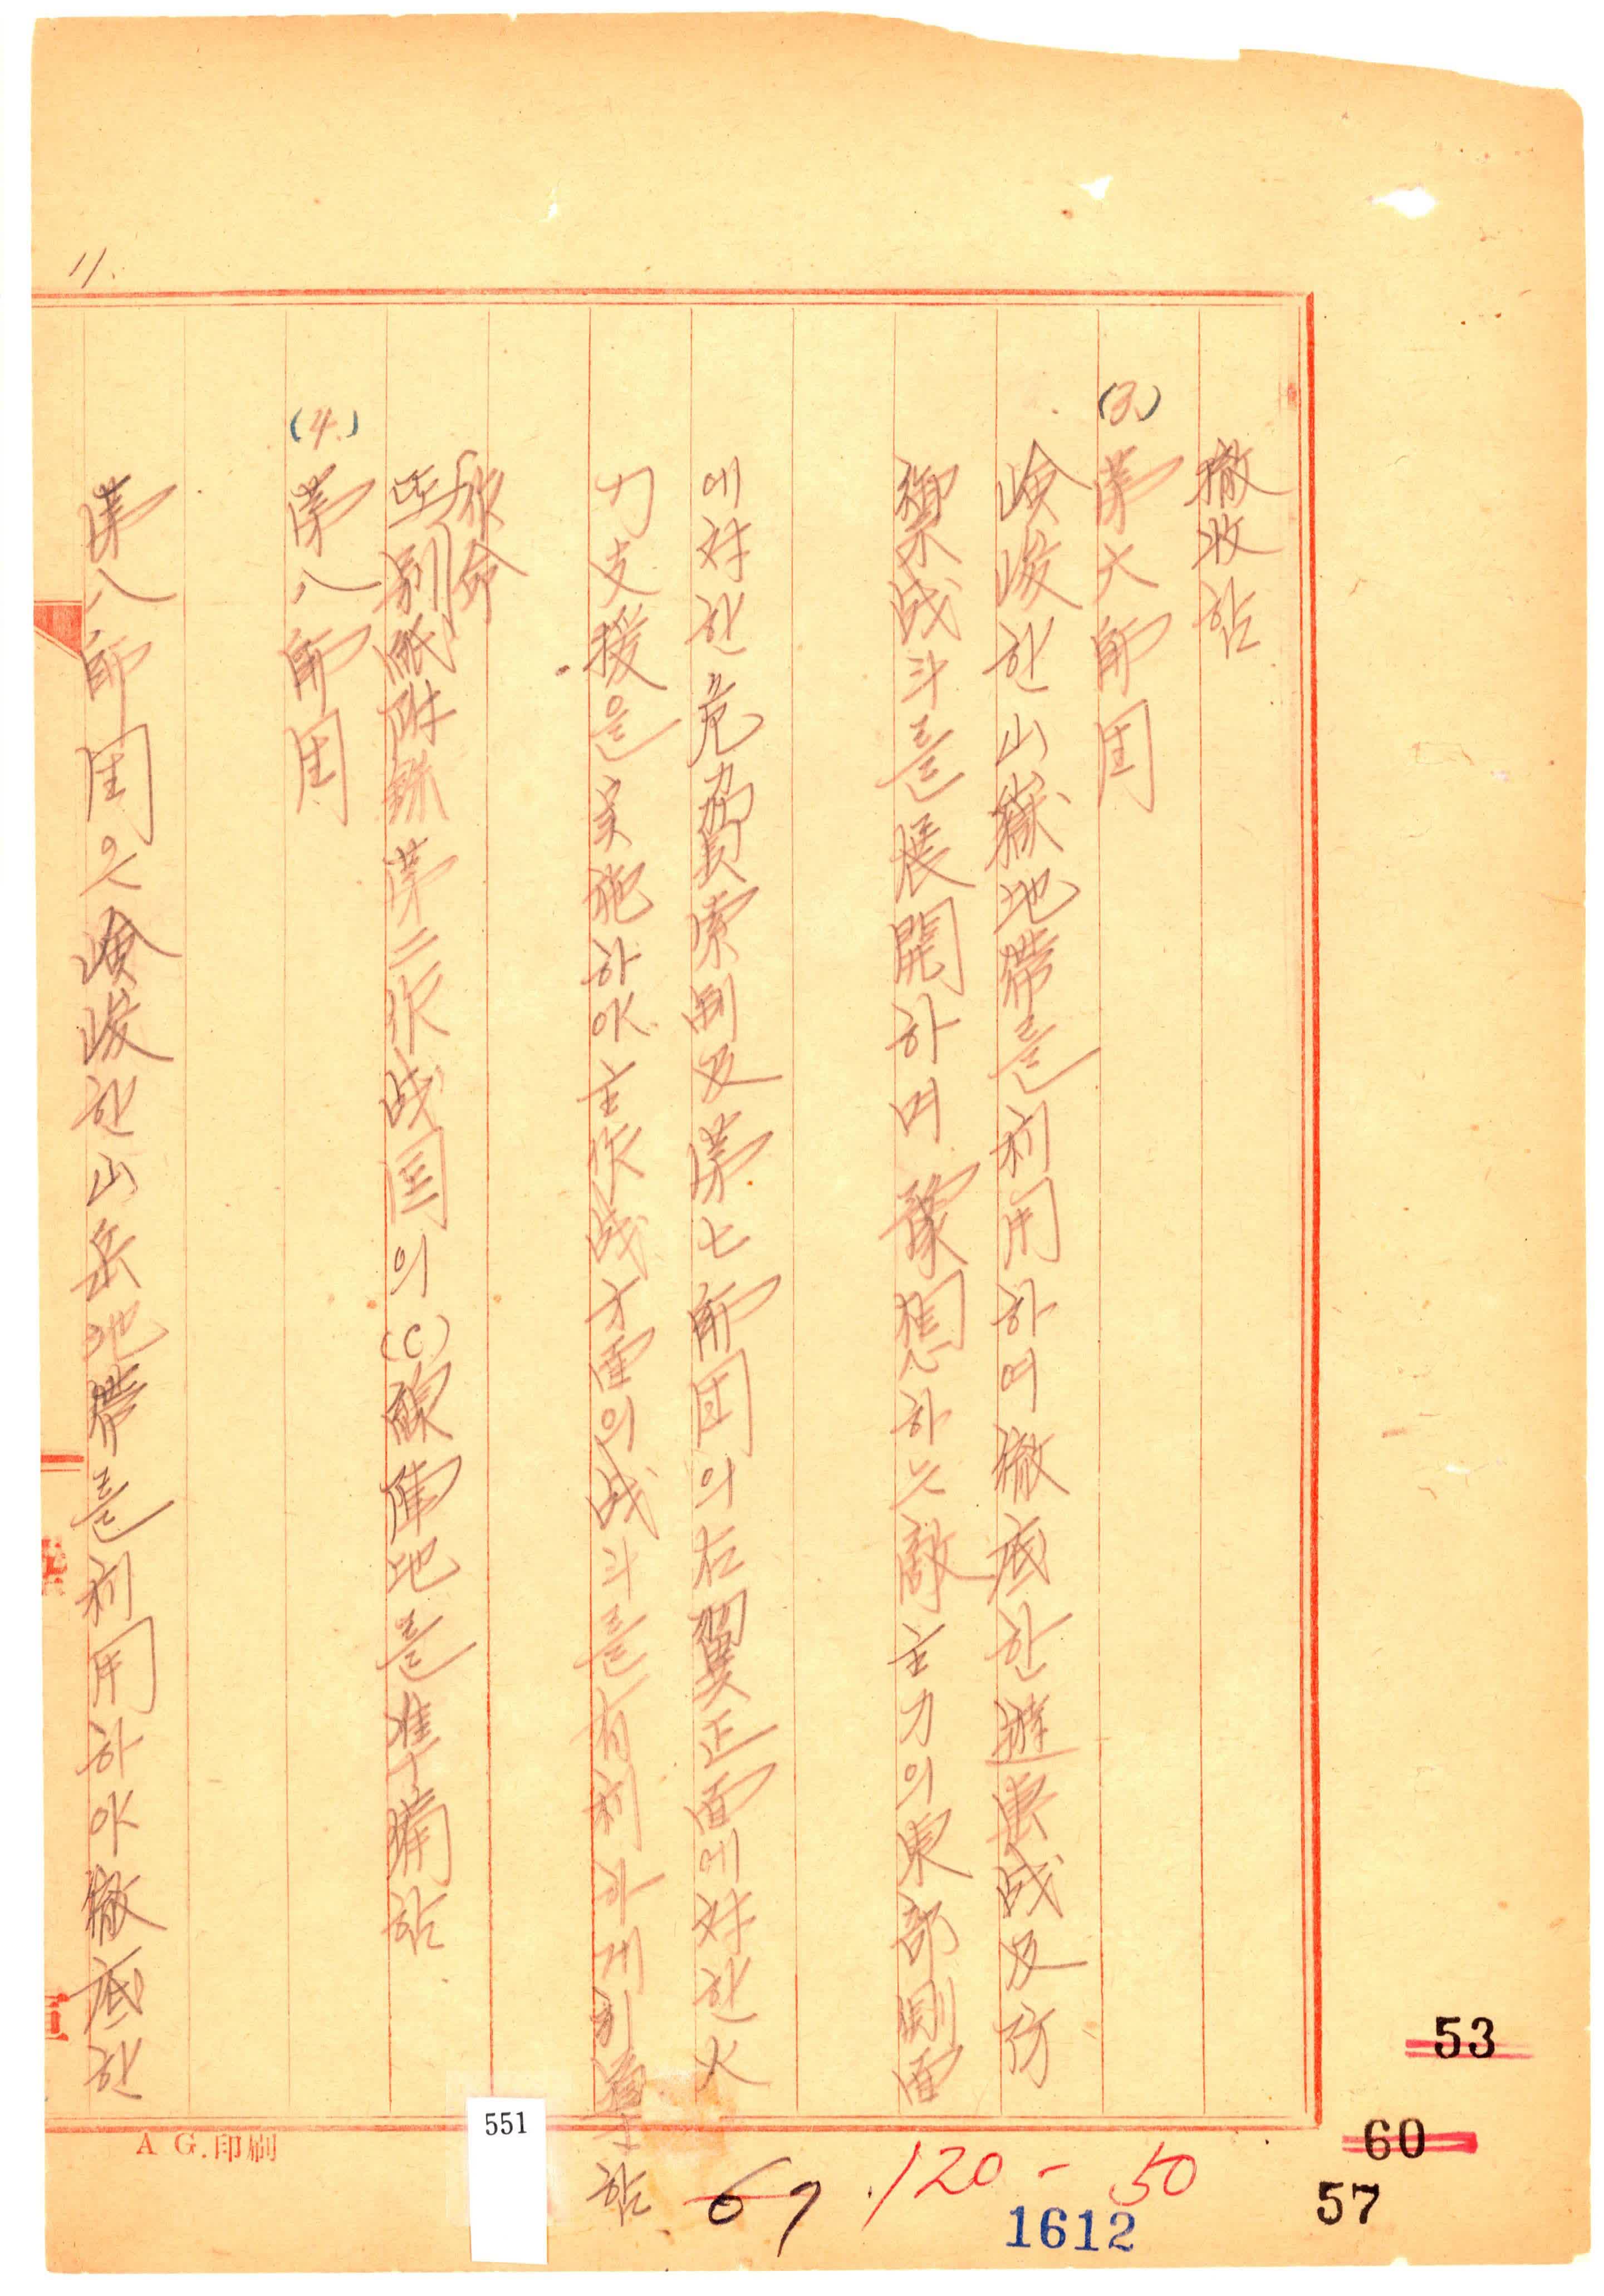 11.
撤收함
(3.) 第六師团
峻峻한 山嶽地帶를 利用하여 徹底한 遊擊战 及 防
禦战斗를 展開하며 豫想하는 敵主力의 東部側面
에 対한 危 索制 及 第七師团의 右翼正面에 対한 火
力支援을 实施하야 主作战方面의 战斗를 有利하게 引導함
作命
또 別紙附錄 第二作战图의 (C) 線陣地를 準備함
(4.) 第八師团
第八師团은 險峻한 山岳地帶를 利用하야 徹底한
A G.印刷
551
67
120 - 50
1612
53
60
57